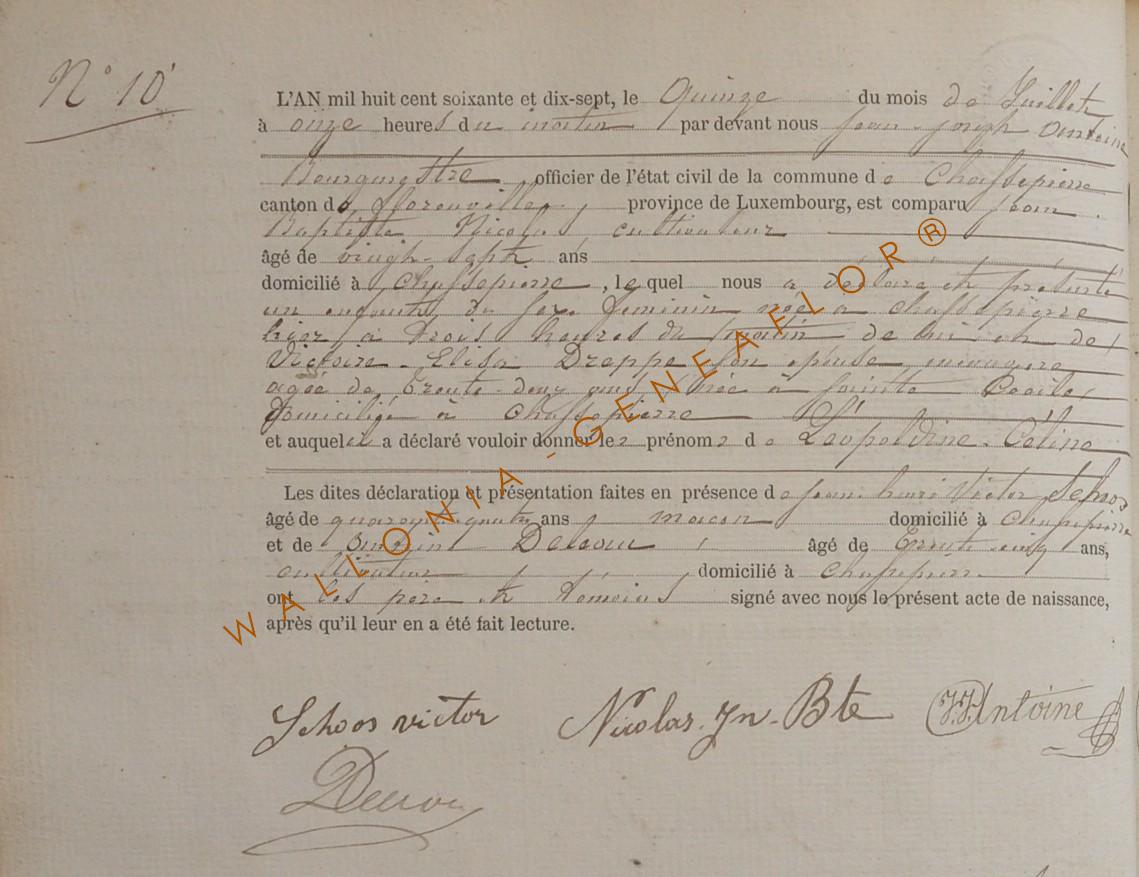 N° 10
L'AN mil huit cent soixante et dix-sept, le Quinze du mois de Juillet
à onze heures du matin, par devant nous Jean Joseph Antoine
Bourgmestre, officier de l'état civil de la commune de Chassepierre
canton de Florenville, province de Luxembourg, est comparu Jean
Baptiste Nicolas, cultivateur
âgé de vingt-sept ans
domicilié à Chassepierre, lequel nous a déclaré et présenté
un enfant du sexe féminin née à chassepierre
hier à trois heures du matin de lui et de
Victoire Elisa Dreppe son épouse, ménagère
agée de trente-deux ans née à sainte Cecile,
domiciliée à chassepierre
et auquel il a déclaré vouloir donner les prénoms de Léopoldine-Céline
Les dites déclaration et présentation faites en présence de jean henri Victor Schoos
âgé de quarante quatre ans, macon domicilié à Chassepierre
et de âgé de trente cinq ans,
cultivateur, domicilié à Chassepierre
ont les père et témoins signé avec nous le présent acte de naissance,
après qu'il leur en a été fait lecture.
Schoos victor Nicolas Jn-Bte JJAntoine
WALLONIA - GENEAFLOR®